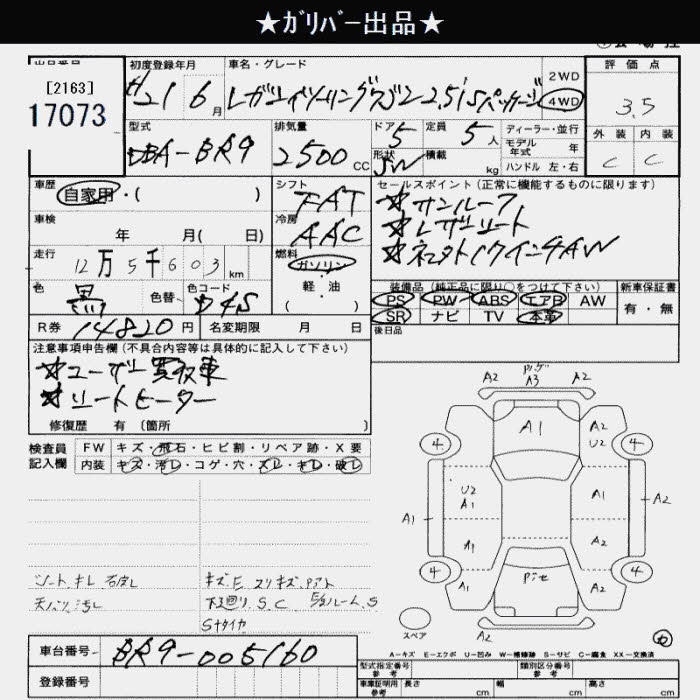 ★ｶﾞﾘﾊﾞｰ出品★
[2163]
17073
初度登録年月
H21 6月
車名・グレード
レガシィツーリングワゴン2.5iSパッケージ
2WD
4WD
評価点
3.5
外装 内装
C C
型式
DBA-BR9
排気量
2500cc
ドア 5
定員 5人
形状 SW
積載 kg
ディーラー・並行
モデル年式 年
ハンドル 左・右
車歴
自家用・( )
車検
年 月( 日)
走行
12万5千603km
色
黒
色替
色コード
D4S
シフト
FAT
冷房
AAC
燃料
ガソリン
・
軽・油
( )
セールスポイント(正常に機能するものに限ります)
☆サンルーフ
☆レザーシート
装備品(純正品に限り○をつけて下さい)
PS PW ABS エアB AW
SR ナビ TV 本革
新車保証書
有・無
後日品
R券 14820円
名変期限 月 日
注意事項申告欄(不具合内容等は具体的に記入して下さい)
☆ユーザー買取車
☆シートヒーター
修復歴 有 (箇所 )
検査員
記入欄
FW キズ・飛石・ヒビ割・リペア跡・X要
内装 キズ・汚レ・コゲ・穴・ズレ・キレ・破レ
天バリ汚レ
下廻り.S.C
Sタイヤ
A2 A3 A2
A1
4
A2
U2
4
A1
U2
A1
A1
A2
A1
A2
4
A1
A2
4
スペア
A2
A－キズ E－エクボ U－凹み W－補修跡 S－サビ C－腐食 XX－交換済
車台番号 BR9-005160
登録番号
型式指定番号
参考
類別区分番号
参考
車庫証明用
参考
長さ cm
幅 cm
高さ cm